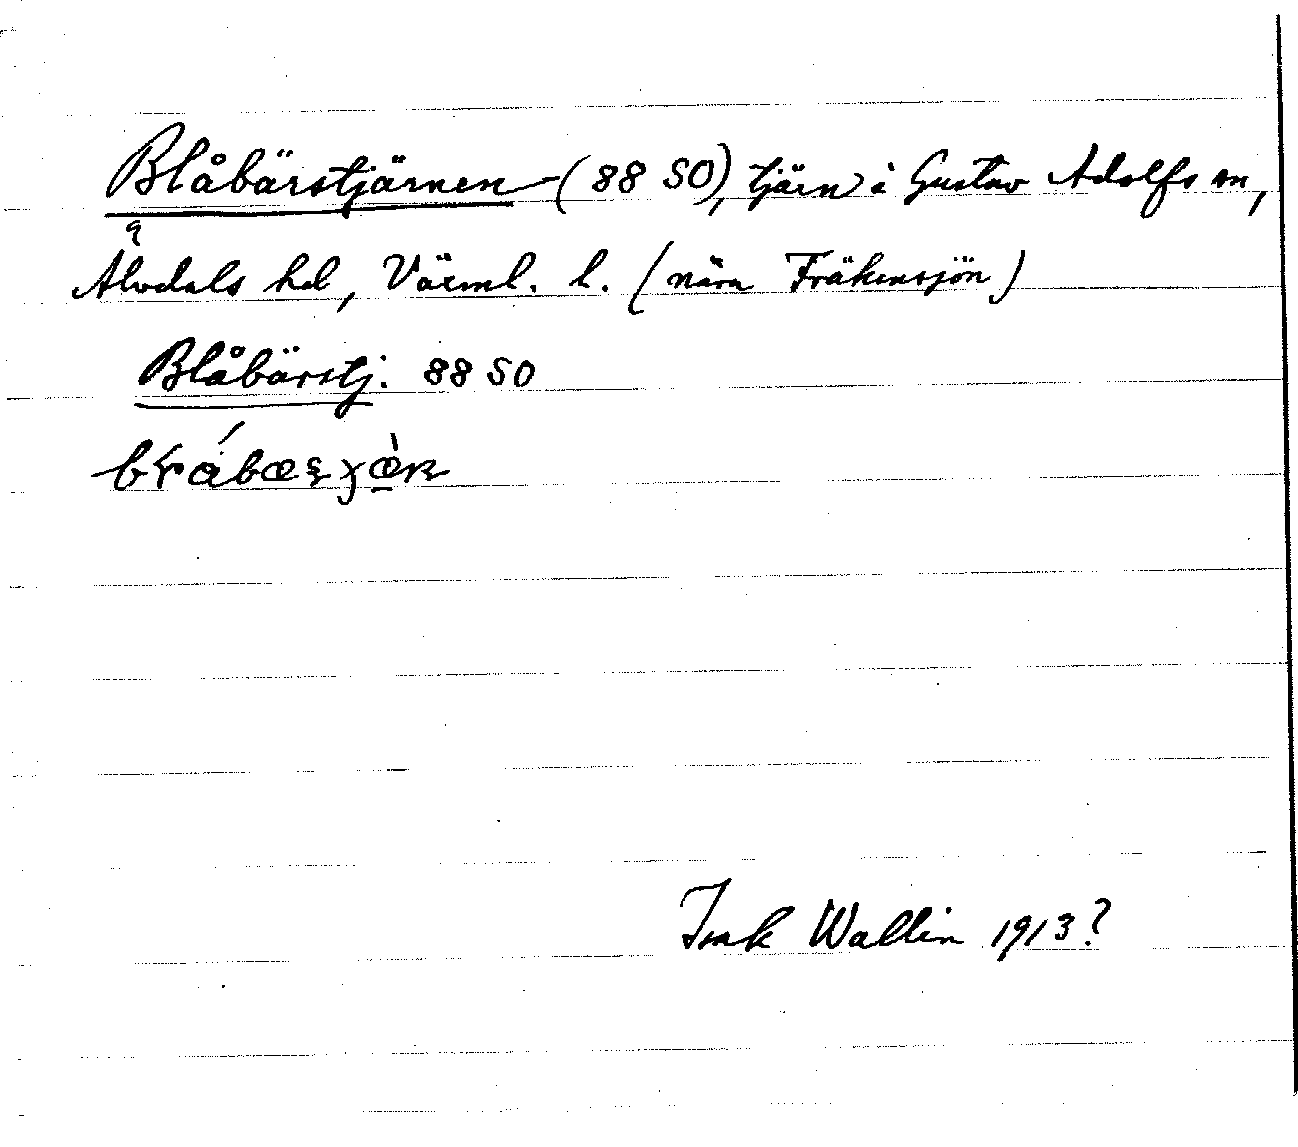 Blåbärstjärnen (88 SO), tjärn i Gustav Adolfs sn,
Älvdals hd, Värml. l. (nära Fräkensjön)
Blåbärstj. 88 SO
Isak Wallin 1913?